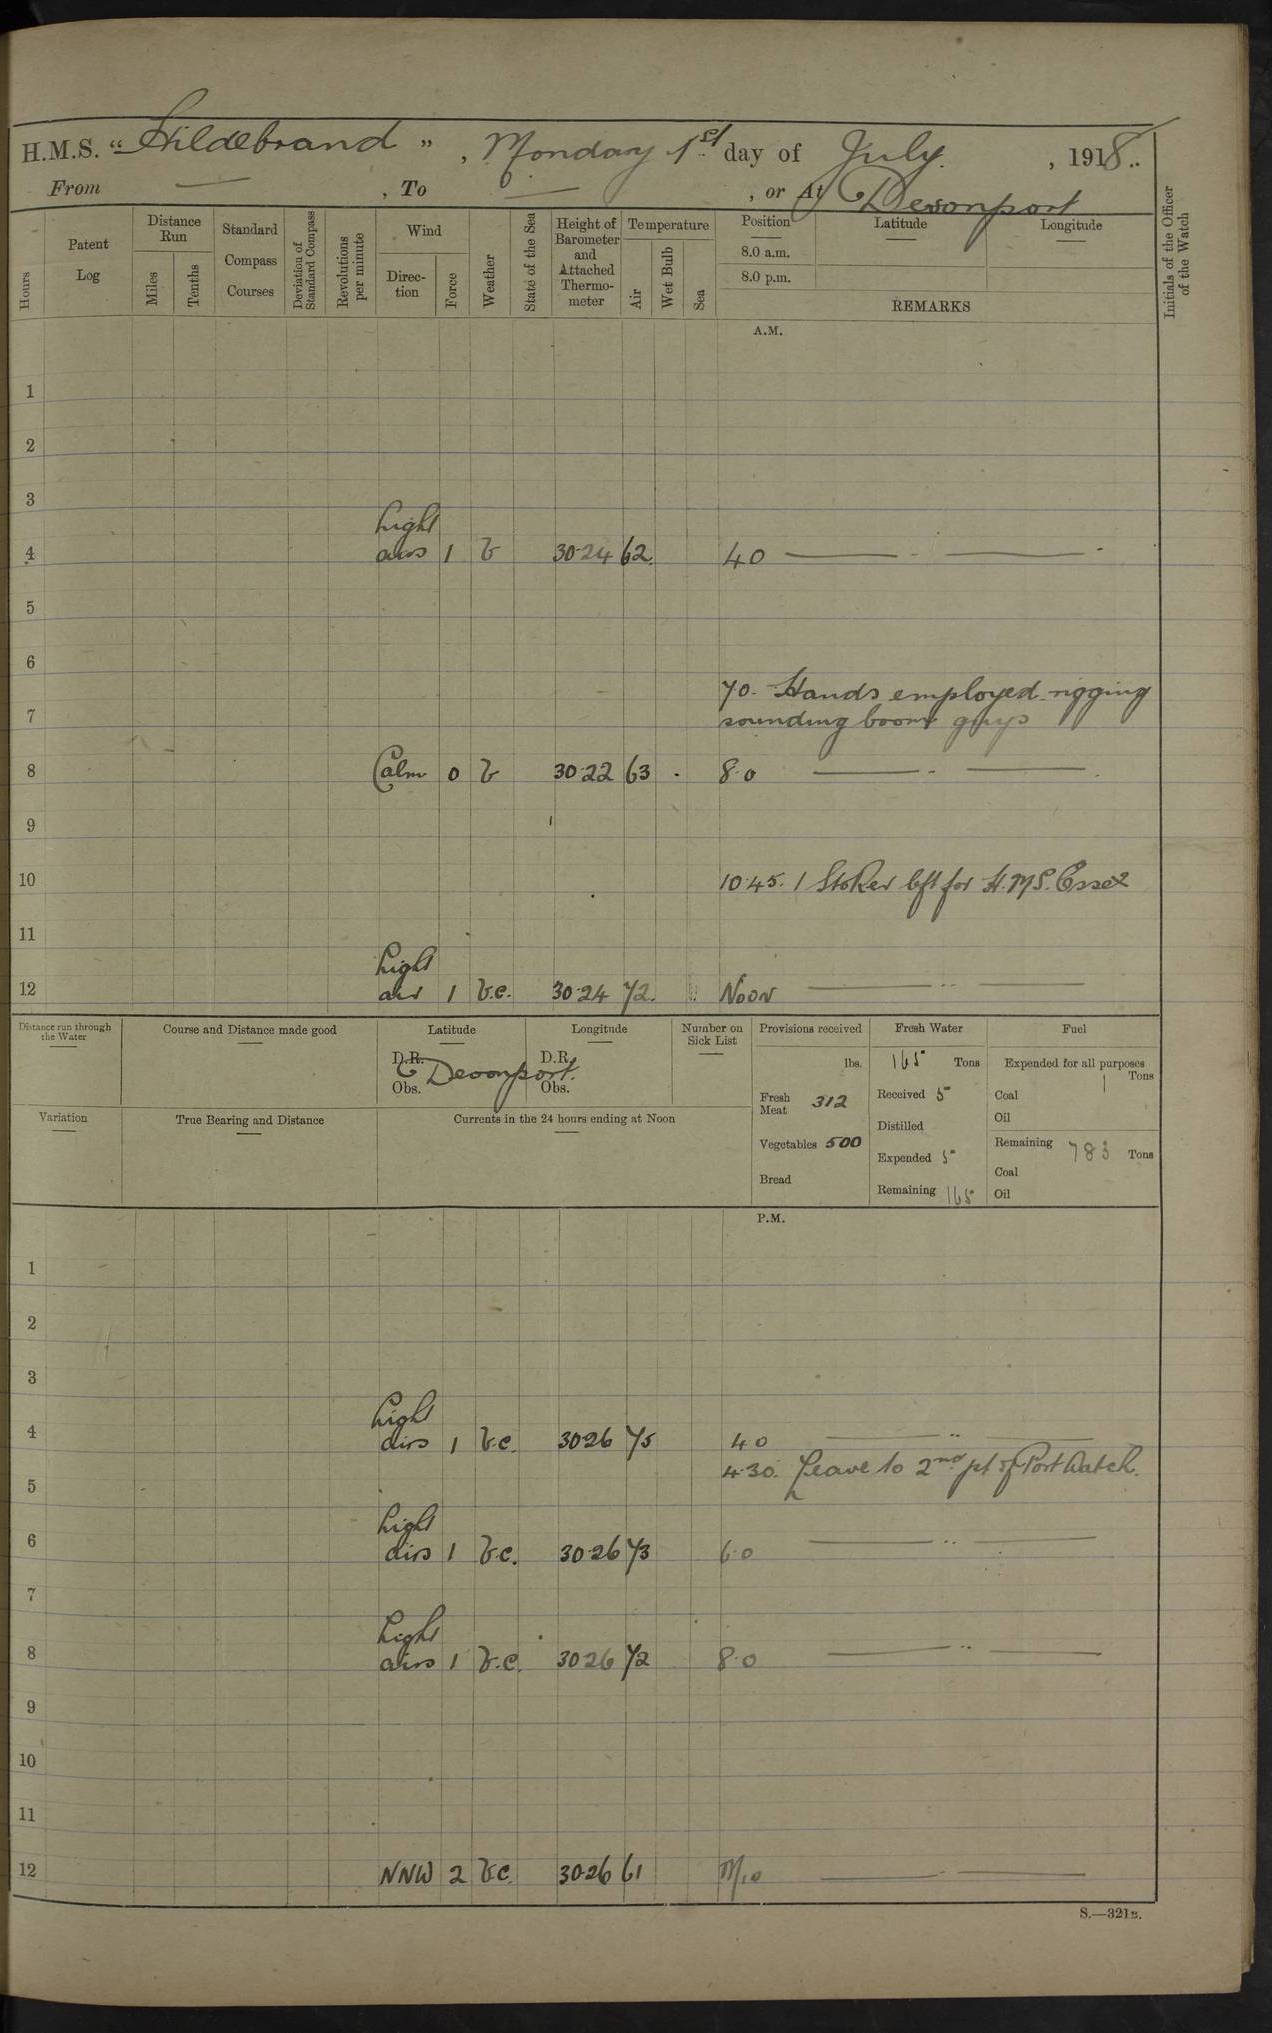 H.M.S. "Hildebrand", Monday 1st day of July, 1918.
From — , To — , or At Devonport
Hours
Patent Log
Distance Run
Miles
Tenths
Standard Compass Courses
Deviation of Standard Compass
Revolutions per minute
Wind
Direction
Force
Weather
State of the Sea
Height of Barometer and Attached Thermometer
Temperature
Air
Wet Bulb
Sea
Position
8.0 a.m.
8.0 p.m.
Latitude
Longitude
REMARKS
Initials of the Officer of the Watch
A.M.
1
2
3
Light
4 airs 1 b 30.24 62 4.0 — " —
5
6
7.0. Hands employed rigging
7 sounding boom guys
8 Calm 0 b 30.22 63 8.0 — " —
9
10 10.45. 1 Stoker left for H.M.S. Essex
11
Light
12 air 1 b.c. 30.24 72 Noon — " —
Distance run through the Water
Course and Distance made good
Latitude
D.R.
Obs.
Longitude
D.R.
Obs.
Devonport.
Number on Sick List
Provisions received
lbs.
Fresh Meat 312
Vegetables 500
Bread
Fresh Water
165 Tons
Received 5
Distilled
Expended 5
Remaining 165
Fuel
Expended for all purposes
1 Tons
Coal
Oil
Remaining 783 Tons
Coal
Oil
Variation
True Bearing and Distance
Currents in the 24 hours ending at Noon
P.M.
1
2
3
Light
4 airs 1 b.c. 30.26 75 4.0 — " —
4.30. Leave to 2nd pt of Port Watch.
5
Light
6 airs 1 b.c. 30.26 73 6.0 — " —
7
Light
8 airs 1 b.c. 30.26 72 8.0 — " —
9
10
11
12 NNW 2 b.c. 30.26 61 — " —
S.—321B.